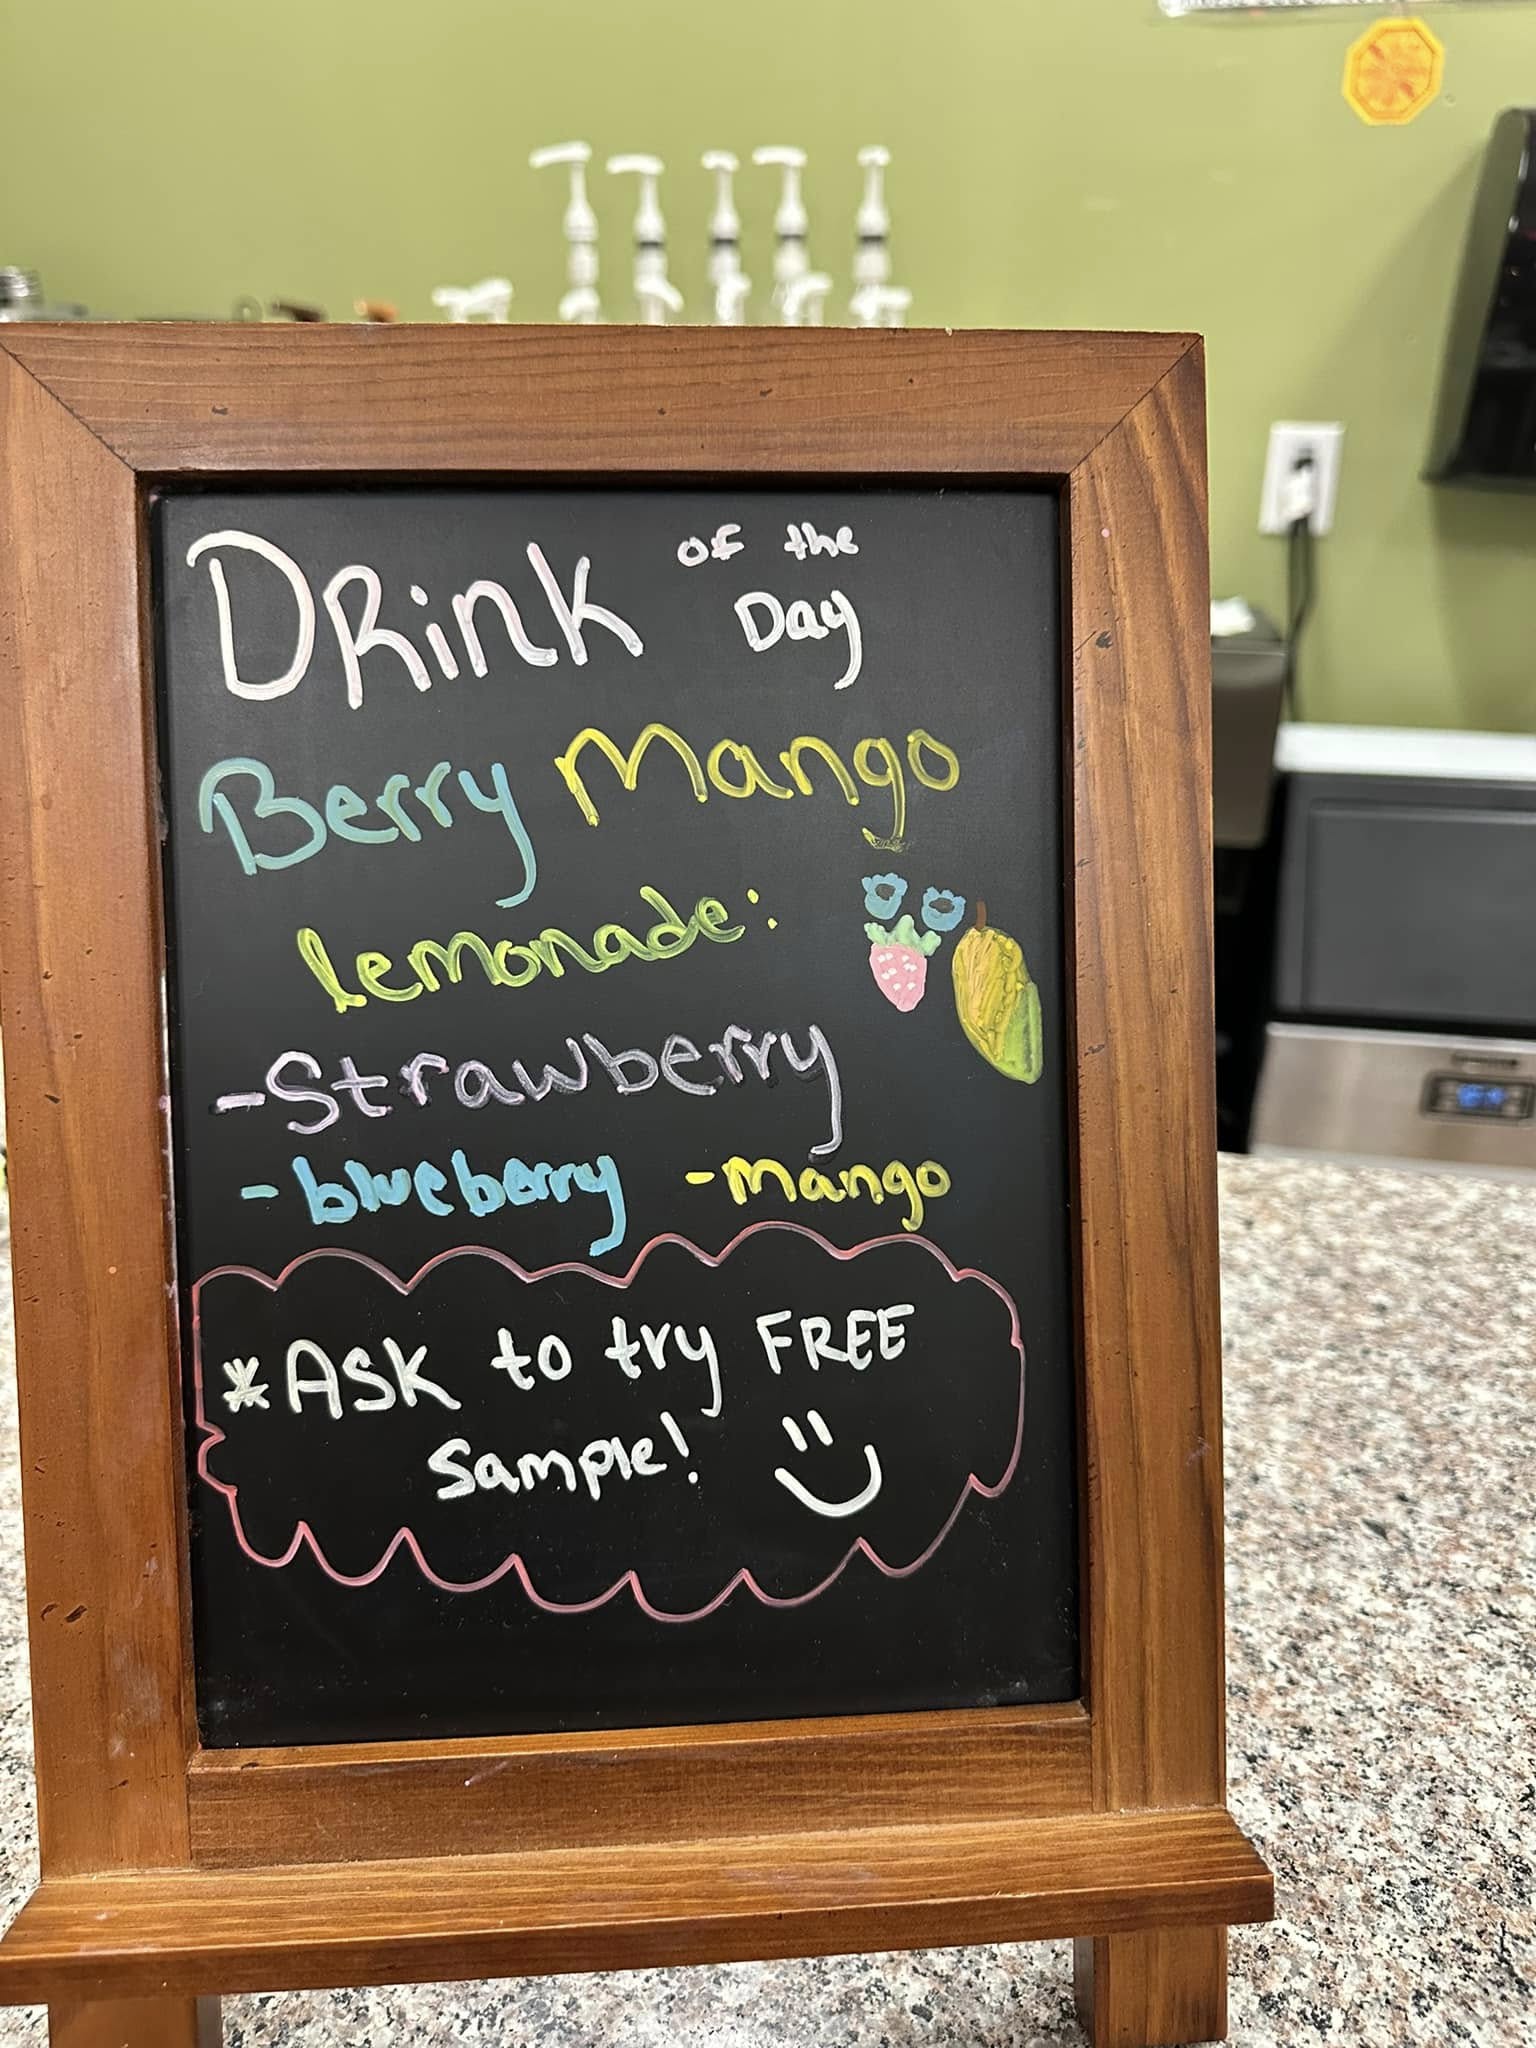 DRink of the Day
Berry Mango
lemonade:
-Strawberry
-blueberry -mango
*ASK to try FREE
Sample!